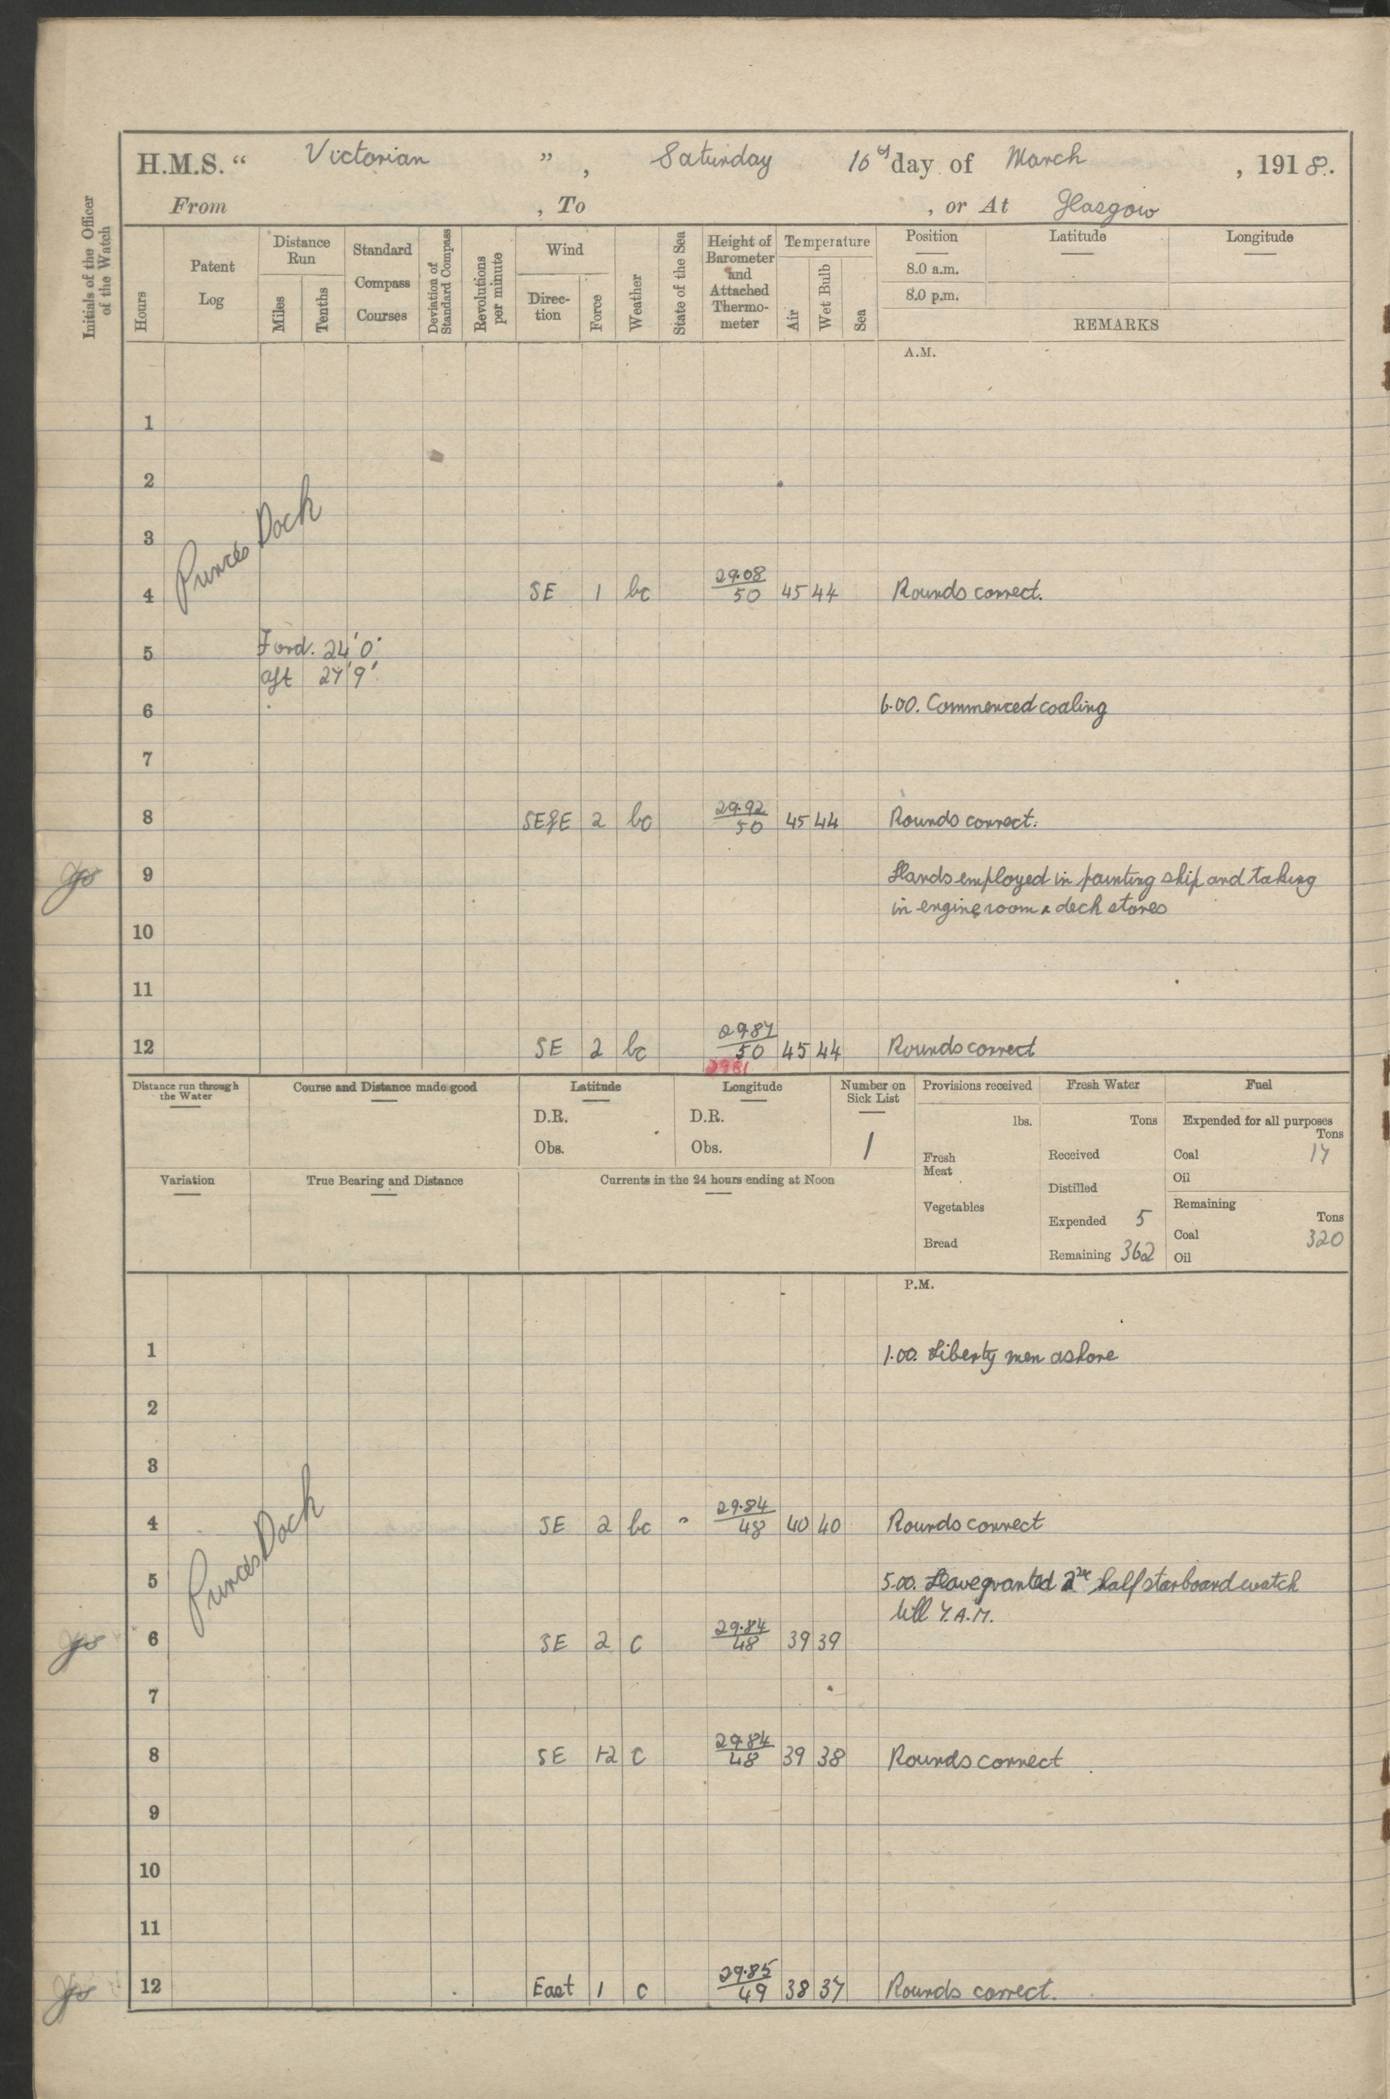 H.M.S. " Victorian ", Saturday 16th day of March, 1918.
From , To , or At Glasgow
Initials of the Officer of the Watch
Hours
Patent Log
Distance Run
Miles
Tenths
Standard Compass Courses
Deviation of Standard Compass
Revolutions per minute
Wind
Direction
Force
Weather
State of the Sea
Height of Barometer and Attached Thermometer
Temperature
Air
Wet Bulb
Sea
Position Latitude Longitude
8.0 a.m.
8.0 p.m.
REMARKS
A.M.
1
2
3
Princes Dock
4 SE 1 bc 29.08 50 45 44 Rounds correct.
5 Ford. 24' 0"
aft 27' 9'
6 6.00. Commenced coaling
7
8 SE 2 bc 29.92 50 45 44 Rounds correct.
9 Hands employed in painting ship and taking
in engine room & deck stores
10
11
12 SE 2 bc 29.87 50 45 44 Rounds correct
2981
Distance run through the Water
Course and Distance made good
Latitude
D.R.
Obs.
Longitude
D.R.
Obs.
Number on Sick List
1
Provisions received
lbs.
Fresh Meat
Vegetables
Bread
Fresh Water
Tons
Received
Distilled
Expended 5
Remaining 362
Fuel
Expended for all purposes
Tons
Coal 17
Oil
Remaining
Tons
Coal 320
Oil
Variation
True Bearing and Distance
Currents in the 24 hours ending at Noon
P.M.
1 1.00. Liberty men ashore
2
3
Princes Dock
4 SE 2 bc " 29.84 48 40 40 Rounds correct
5 5.00. Leave granted 2nd half starboard watch
till 7. A.M.
6 SE 2 c 29.84 48 39 39
7
8 SE 1-2 c 29.84 48 39 38 Rounds correct
9
10
11
12 East 1 c 29.85 49 38 37 Rounds correct.